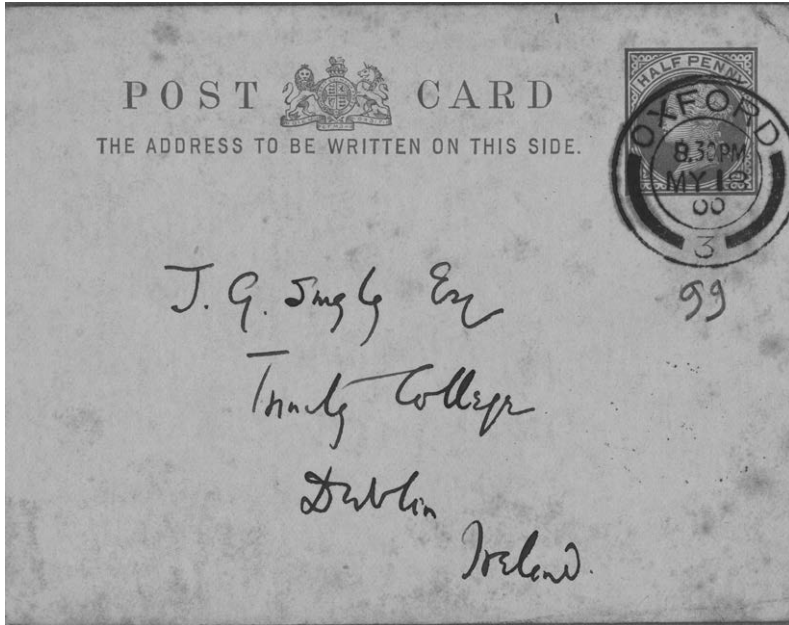 POST CARD
THE ADDRESS TO BE WRITTEN ON THIS SIDE.
HALF PENNY
OXFORD
8.30PM
MY 1
00
3
99
J. G.
Esq
Trinity College
Dublin
Ireland.